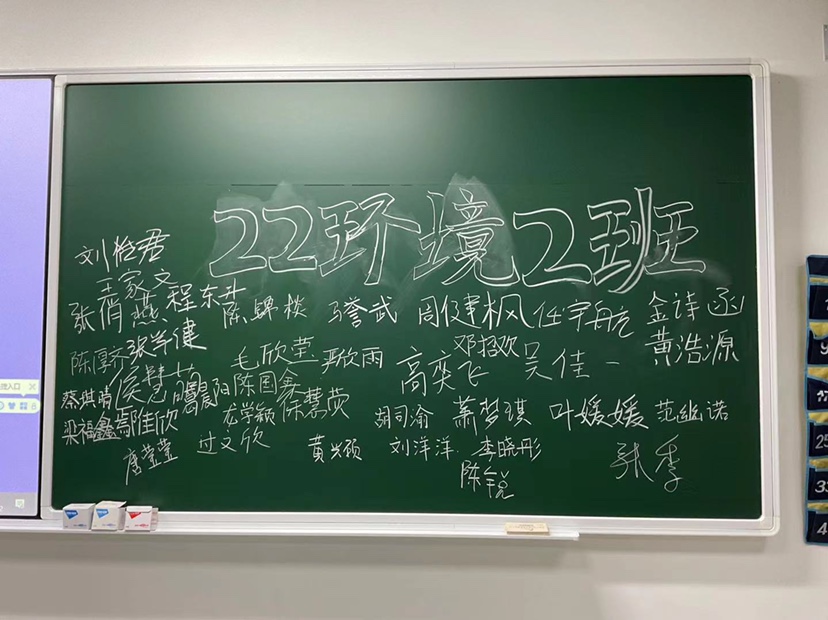 22环境2班
刘哈君
王家文
张俏燕 程东升 陈锦棪 马誉武 周健枫 任宇航 金诗函
陈厚齐 张学健 毛欣莹 尹欣雨 邓招欢 吴佳一 黄浩源
高奕飞
蔡淇晴 侯慧茵 晨阳 陈国鑫
梁福鑫 鄢佳欣 龙学颖 陈慧荧 胡司渝 萧梦琪 叶媛媛 范幽诺
唐莹莹 过文欣 黄兴颀 刘洋洋 李晓彤
陈锐 张季